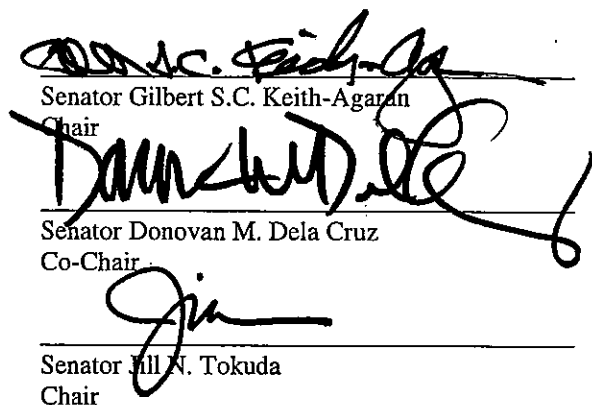 Senator Gilbert S.C. Keith-Agaran
Chair
Senator Donovan M. Dela Cruz
Co-Chair
Jill
Senator Jill N. Tokuda
Chair